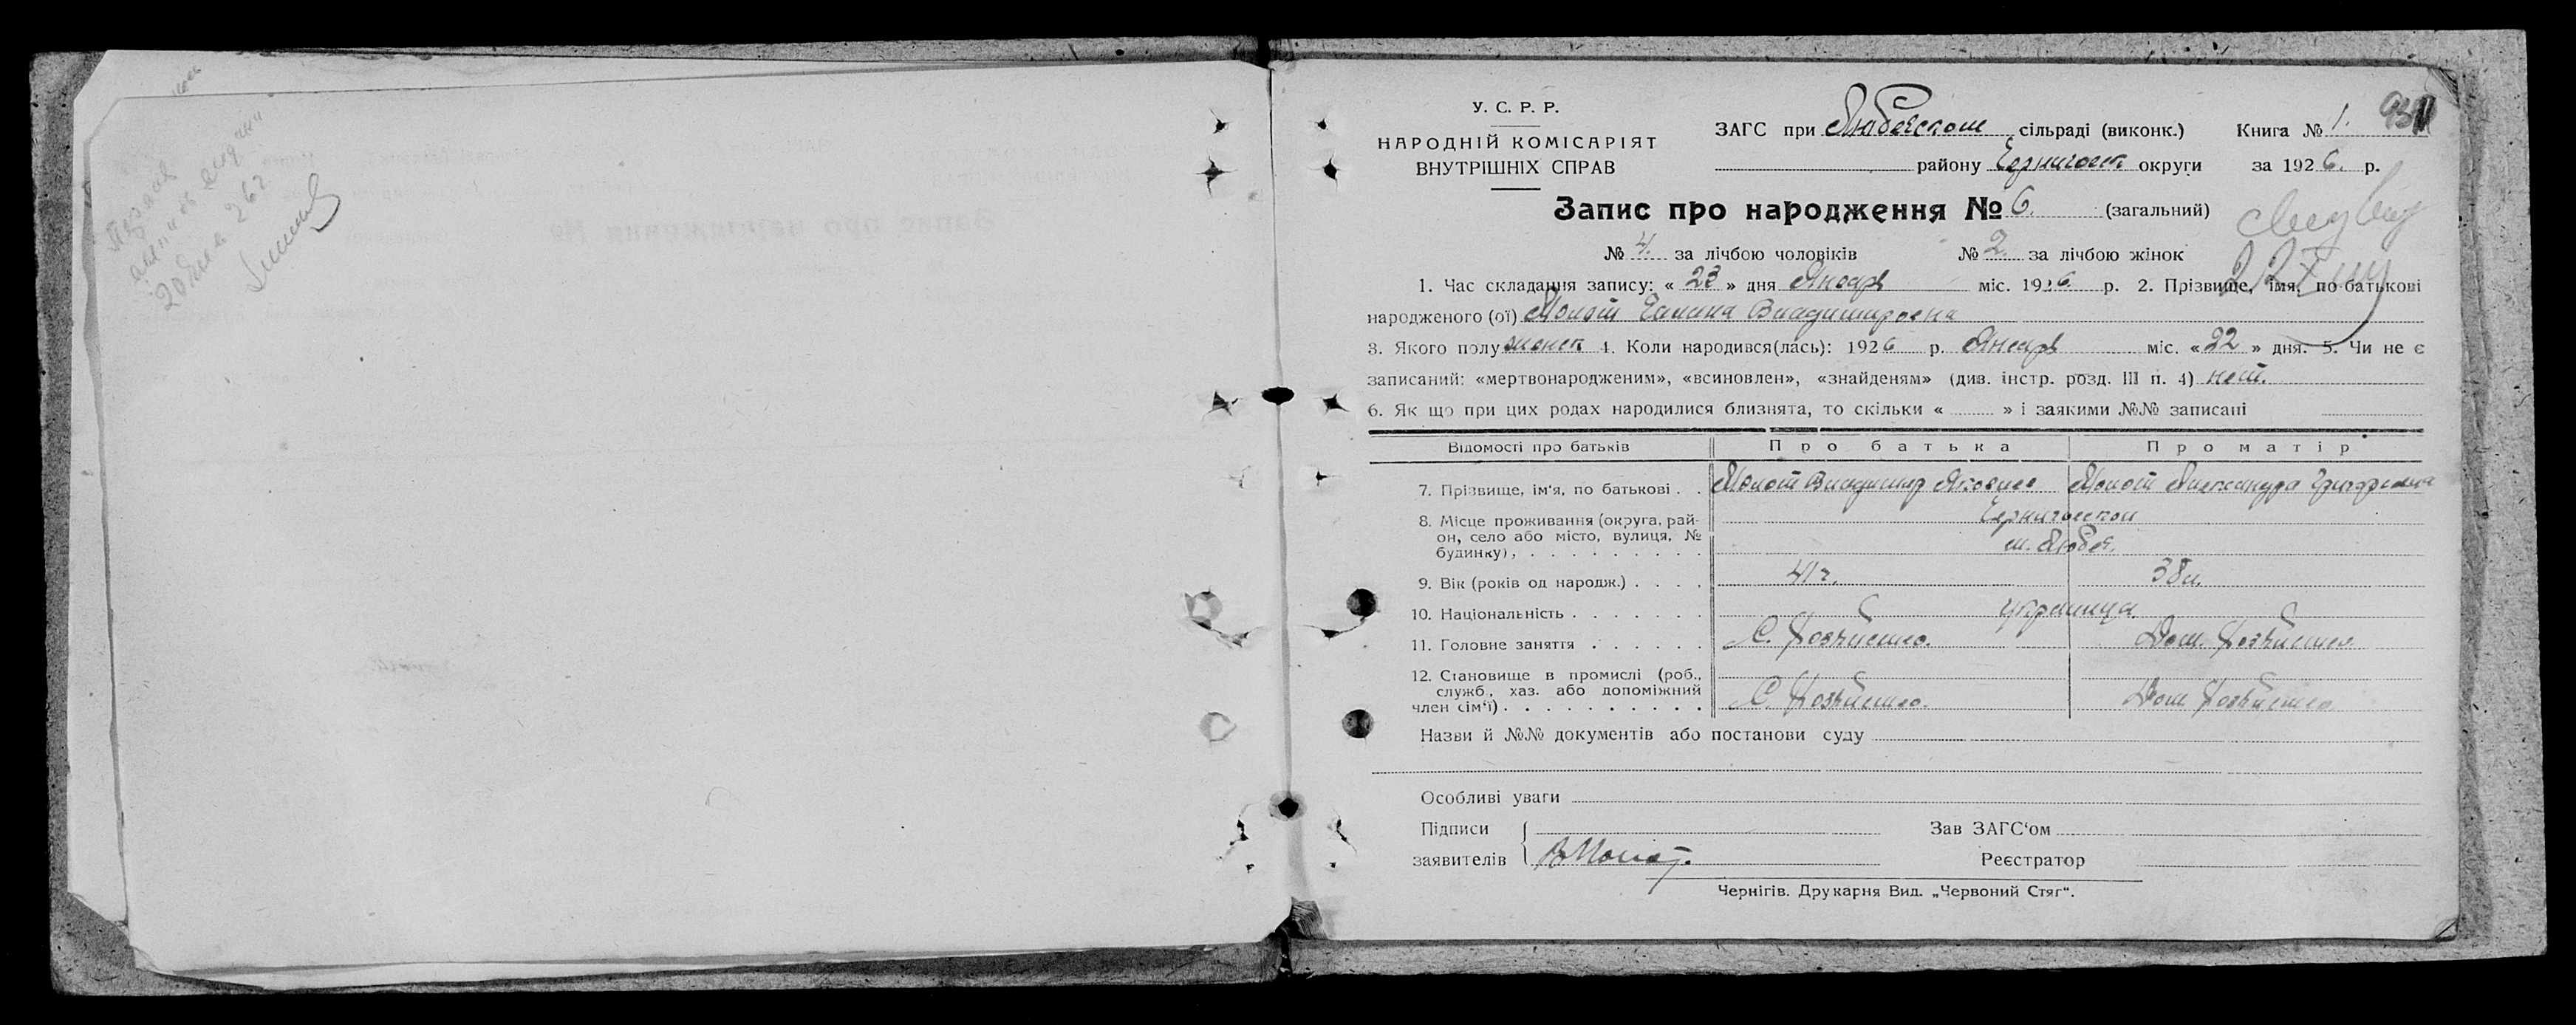 У. С. Р. Р.
НАРОДНІЙ КОМІСАРІЯТ
ВНУТРІШНІХ СПРАВ
ЗАГС при Любечском сільраді (виконк.) Книга № 1.
району Черниговск округи за 1926. р.
Запис про народження № 6. (загальний)
№ 4. за лічбою чоловіків № 2. за лічбою жінок
1. Час складання запису: « 23 » дня Января міс. 1926 р. 2. Прізвище, імя, по батькові
народженого (ої) Молот Галина Владимировна
3. Якого полу женск 4. Коли народився(лась): 1926 р. Января міс. « 22 » дня. 5. Чи не є
записаний: «мертвонародженим», «всиновлен», «знайденям» (див. інстр. розд. III п. 4) нет.
6. Як що при цих родах народилися близнята, то скільки « » і заякими №№ записані
Відомості про батьків Про батька Про матір
7. Прізвище, ім'я, по батькові . . Молот Владимир Яковлев Молот Александра Григорьевна
8. Місце проживання (округа, рай-
он, село або місто, вулиця, №
будинку), . . . . . . . . . Черниговской
м. Любеч.
9. Вік (років од народж.) . . . . 41 г. 38 л.
10. Національність . . . . . . . украинца
11. Головне заняття . . . . . . С. Хозяйство. Дом. Хозяйство
12. Становище в промислі (роб.,
служб., хаз. або допоміжний
член сім'ї) . . . . . . . . . . С. Хозяйство. Дом Хозяйство
Назви й №№ документів або постанови суду
Особливі уваги
Підписи
заявителів В Молот.
Зав ЗАГС'ом
Реєстратор
Чернігів. Друкарня Вид. „Червоний Стяг“.